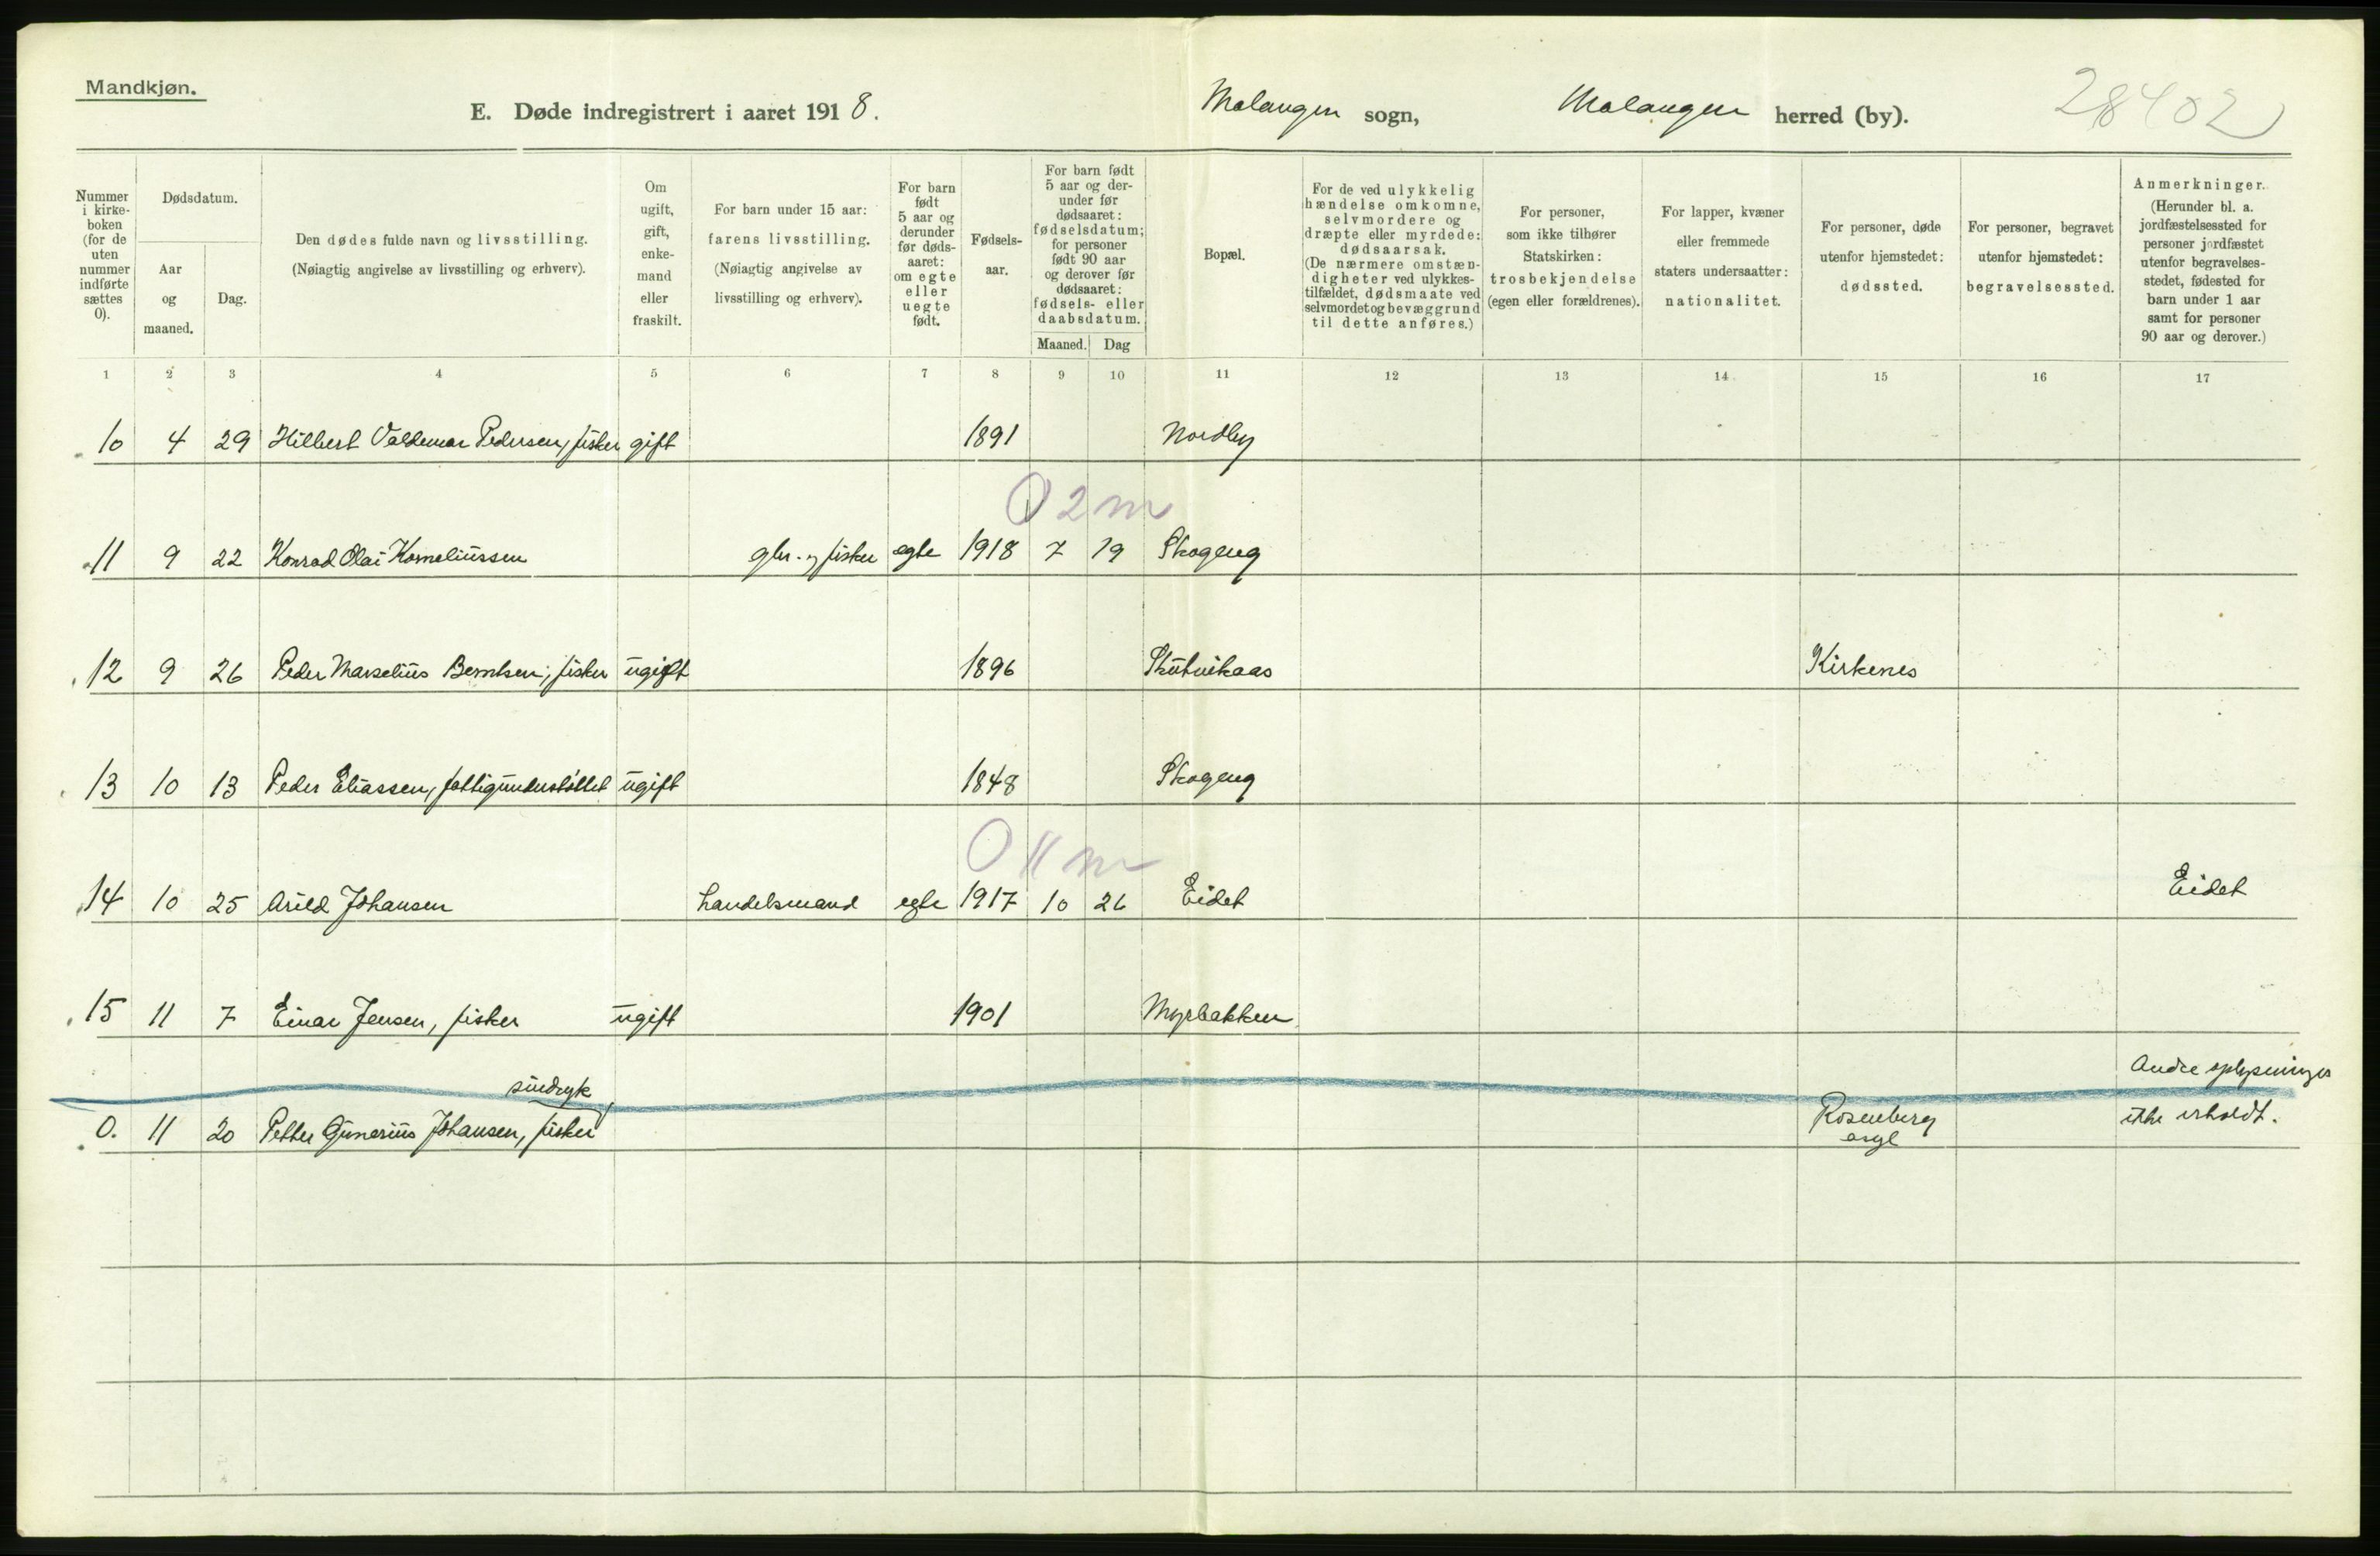 Mandkjøn.
E. Døde indregistrert i aaret 1918.
Malangen sogn,
Malangen herred (by).
28402
Nummer i kirke- boken (for de uten nummer indførte sættes 0).
Dødsdatum.
Aar og maaned.
Dag.
Den dødes fulde navn og livsstilling.
(Nøiagtig angivelse av livsstilling og erhverv).
Om ugift, gift, enke- mand eller fraskilt.
For barn under 15 aar:
farens livsstilling.
(Nøiagtig angivelse av
livsstilling og erhverv).
For barn født 5 aar og derunder før døds- aaret: om egte eller uegte født.
Fødsels- aar.
For barn født 5 aar og der- under før dødsaaret: fødselsdatum; for personer født 90 aar og derover før dødsaaret: fødsels- eller daabsdatum.
Maaned. Dag
Bopæl.
For de ved ulykkelig hændelse omkomne, selvmordere og dræpte eller myrdede: dødsaarsak. (De nærmere omstæn- digheter ved ulykkes- tilfældet, dødsmaate ved selvmordet og bevæggrund til dette anføres.)
For personer, som ikke tilhører Statskirken: trosbekjendelse (egen eller forældrenes).
For lapper, kvæner eller fremmede staters undersaatter: nationalitet.
For personer, døde utenfor hjemstedet: dødssted.
For personer, begravet utenfor hjemstedet: begravelsessted.
Anmerkninger. (Herunder bl. a. jordfæstelsessted for personer jordfæstet utenfor begravelses- stedet, fødested for barn under 1 aar samt for personer 90 aar og derover.)
1 2 3 4 5 6 7 8 9 10 11 12 13 14 15 16 17
10 4 29 Hilbert Valdemar Pedersen, fisker gift 1891 Nordby
0 2 m
11 9 22 Konrad Olai Korneliussen gbr. og fisker egte 1918 7 19 Skogeng
12 9 26 Peder Marselius Berntsen, fisker ugift 1896 Skutvikaas Kirkenes
13 10 13 Peder Eliassen, fattigunderstøttet ugift 1848 Skogeng
0 11 m
14 10 25 Arild Johansen handelsmand egte 1917 10 26 Eidet Eidet
15 11 7 Einar Jensen, fisker ugift 1901 Myrbakken
sindsyk Andre oplysninger
0. 11 20 Petter Gunerius Johansen, fisker Rosenberg asyl ikke erholdt.